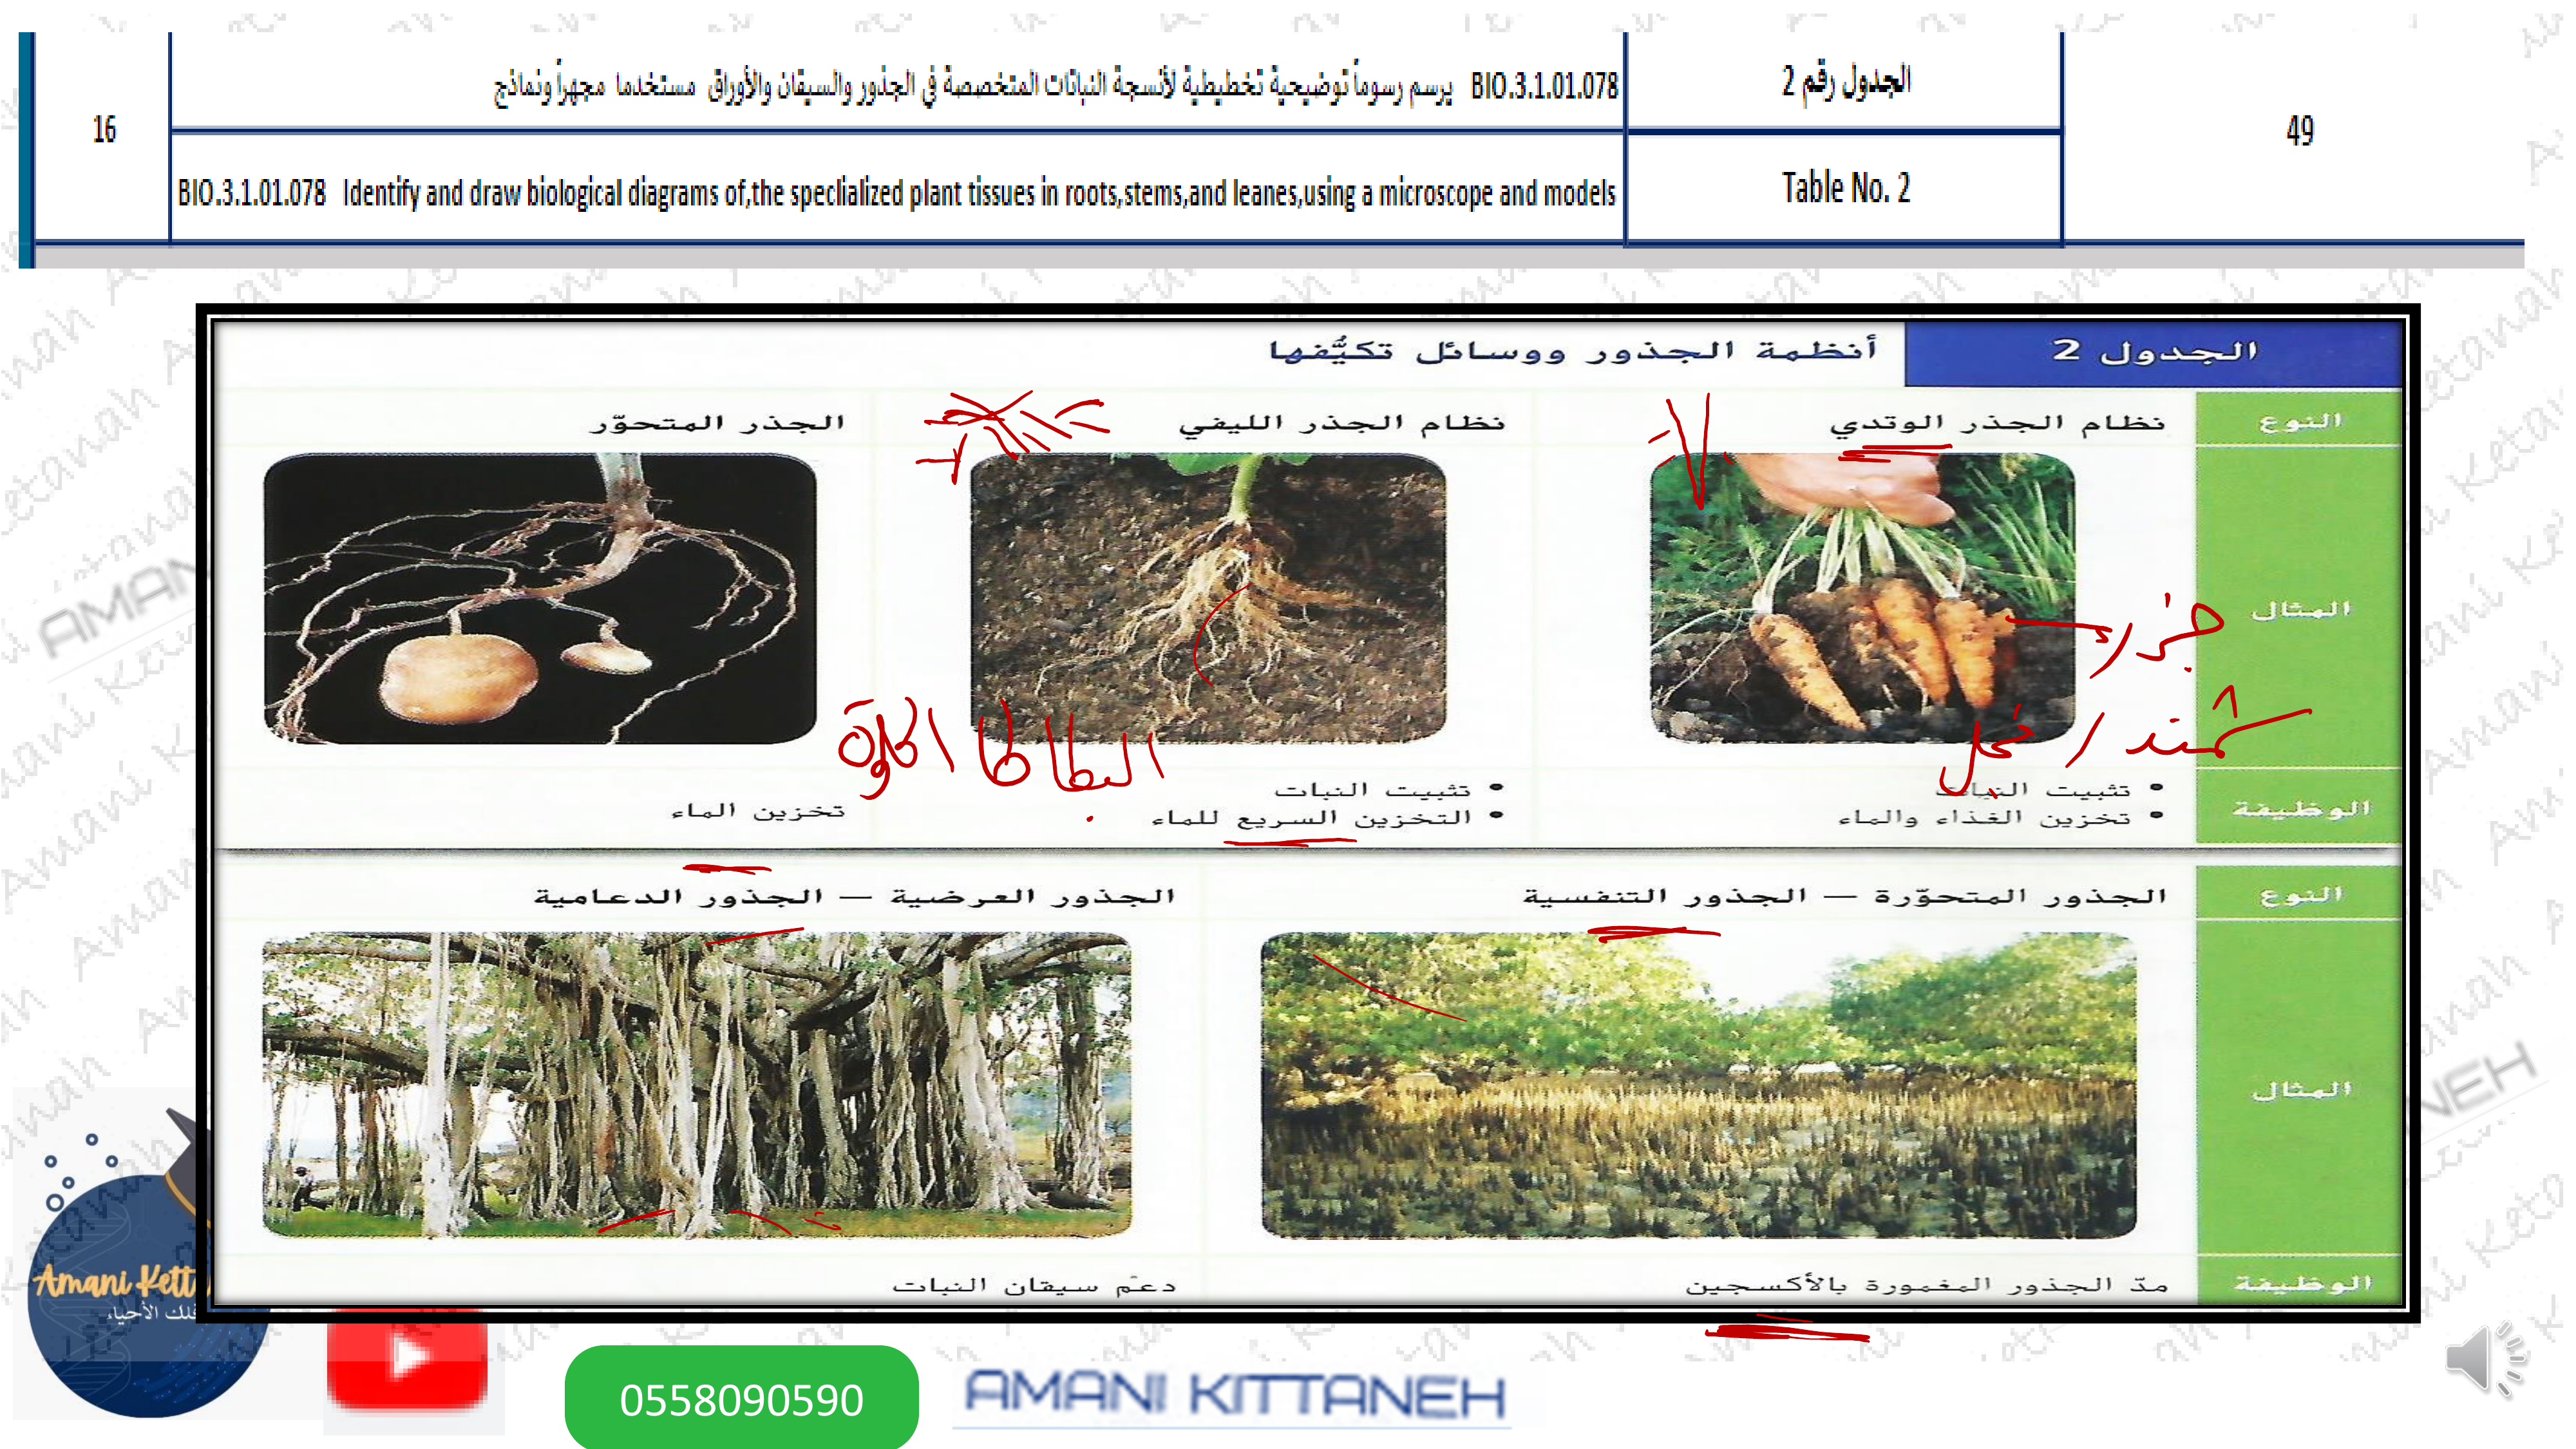 الجدول رقم 2
BIO.3.1.01.078 يرسم رسوماً توضيحية تخطيطية لأنسجة النباتات المتخصصة في الجذور والسيقان والأوراق مستخدما مجهراً ونماذج
49
16
Table No. 2
BIO.3.1.01.078 Identify and draw biological diagrams of,the speclialized plant tissues in roots,stems,and leanes,using a microscope and models
الجدول 2
أنظمة الجذور ووسائل تكيُّفها
النوع
نظام الجذر الوتدي
نظام الجذر الليفي
الجذر المتحوّر
المثال
جزر
شمندر / فجل
البطاطا الحلوة
الوظيفة
• تثبيت النبات
• تخزين الغذاء والماء
• تثبيت النبات
• التخزين السريع للماء
تخزين الماء
النوع
الجذور المتحوّرة — الجذور التنفسية
الجذور العرضية — الجذور الدعامية
المثال
الوظيفة
مدّ الجذور المغمورة بالأكسجين
دعم سيقان النبات
Amani Kett
فلك الأحياء
0558090590
AMANI KITTANEH